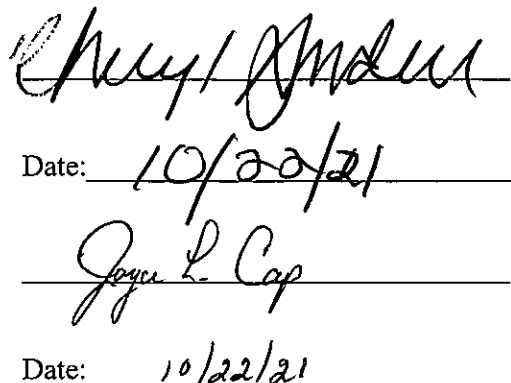 Cheryl
Date: 10/22/21
Joyce L. Cap
Date: 10/22/21